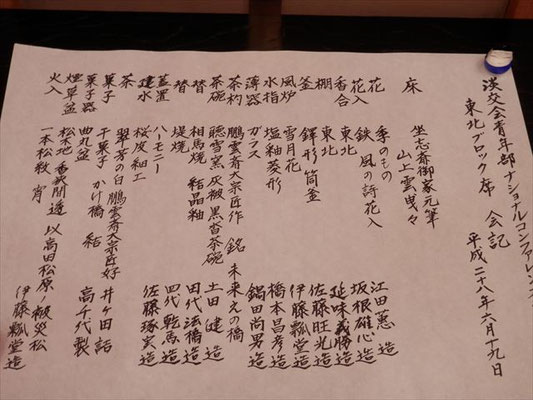 淡交会青年部ナショナルカンファレンス
東北ブロック席 会記 平成二十八年六月十九日
床 坐忘斎御家元筆
山上雲曳々
花 季のもの
花入 鉄 風の詩花入 江田蕙造
香合 東北 坂根雄心造
棚 東北 延味義勝造
釜 鐸形筒釜 佐藤旺光造
風炉 雪月花 伊藤瓢堂造
水指 塩釉菱形 橋本昌彦造
薄器 ガラス 鍋田尚男造
茶杓 鵬雲斎大宗匠作 銘 未来えの橋
茶碗 聴雪窯 灰被黒沓茶碗 土田健造
替 相馬焼 結晶釉 田代法橋造
替 堤焼 四代乾馬造
蓋置 ハーモニー 佐藤琢実造
建水 桜皮細工
茶 翠芳の白 鵬雲斎大宗匠好 井ヶ田詰
菓子 干菓子 かけ橋 結 高千代製
菓子器 曲丸盆
煙草盆 松木 香狭間透 以高田松原ノ被災松
火入 一本松敷 肖 伊藤瓢堂造